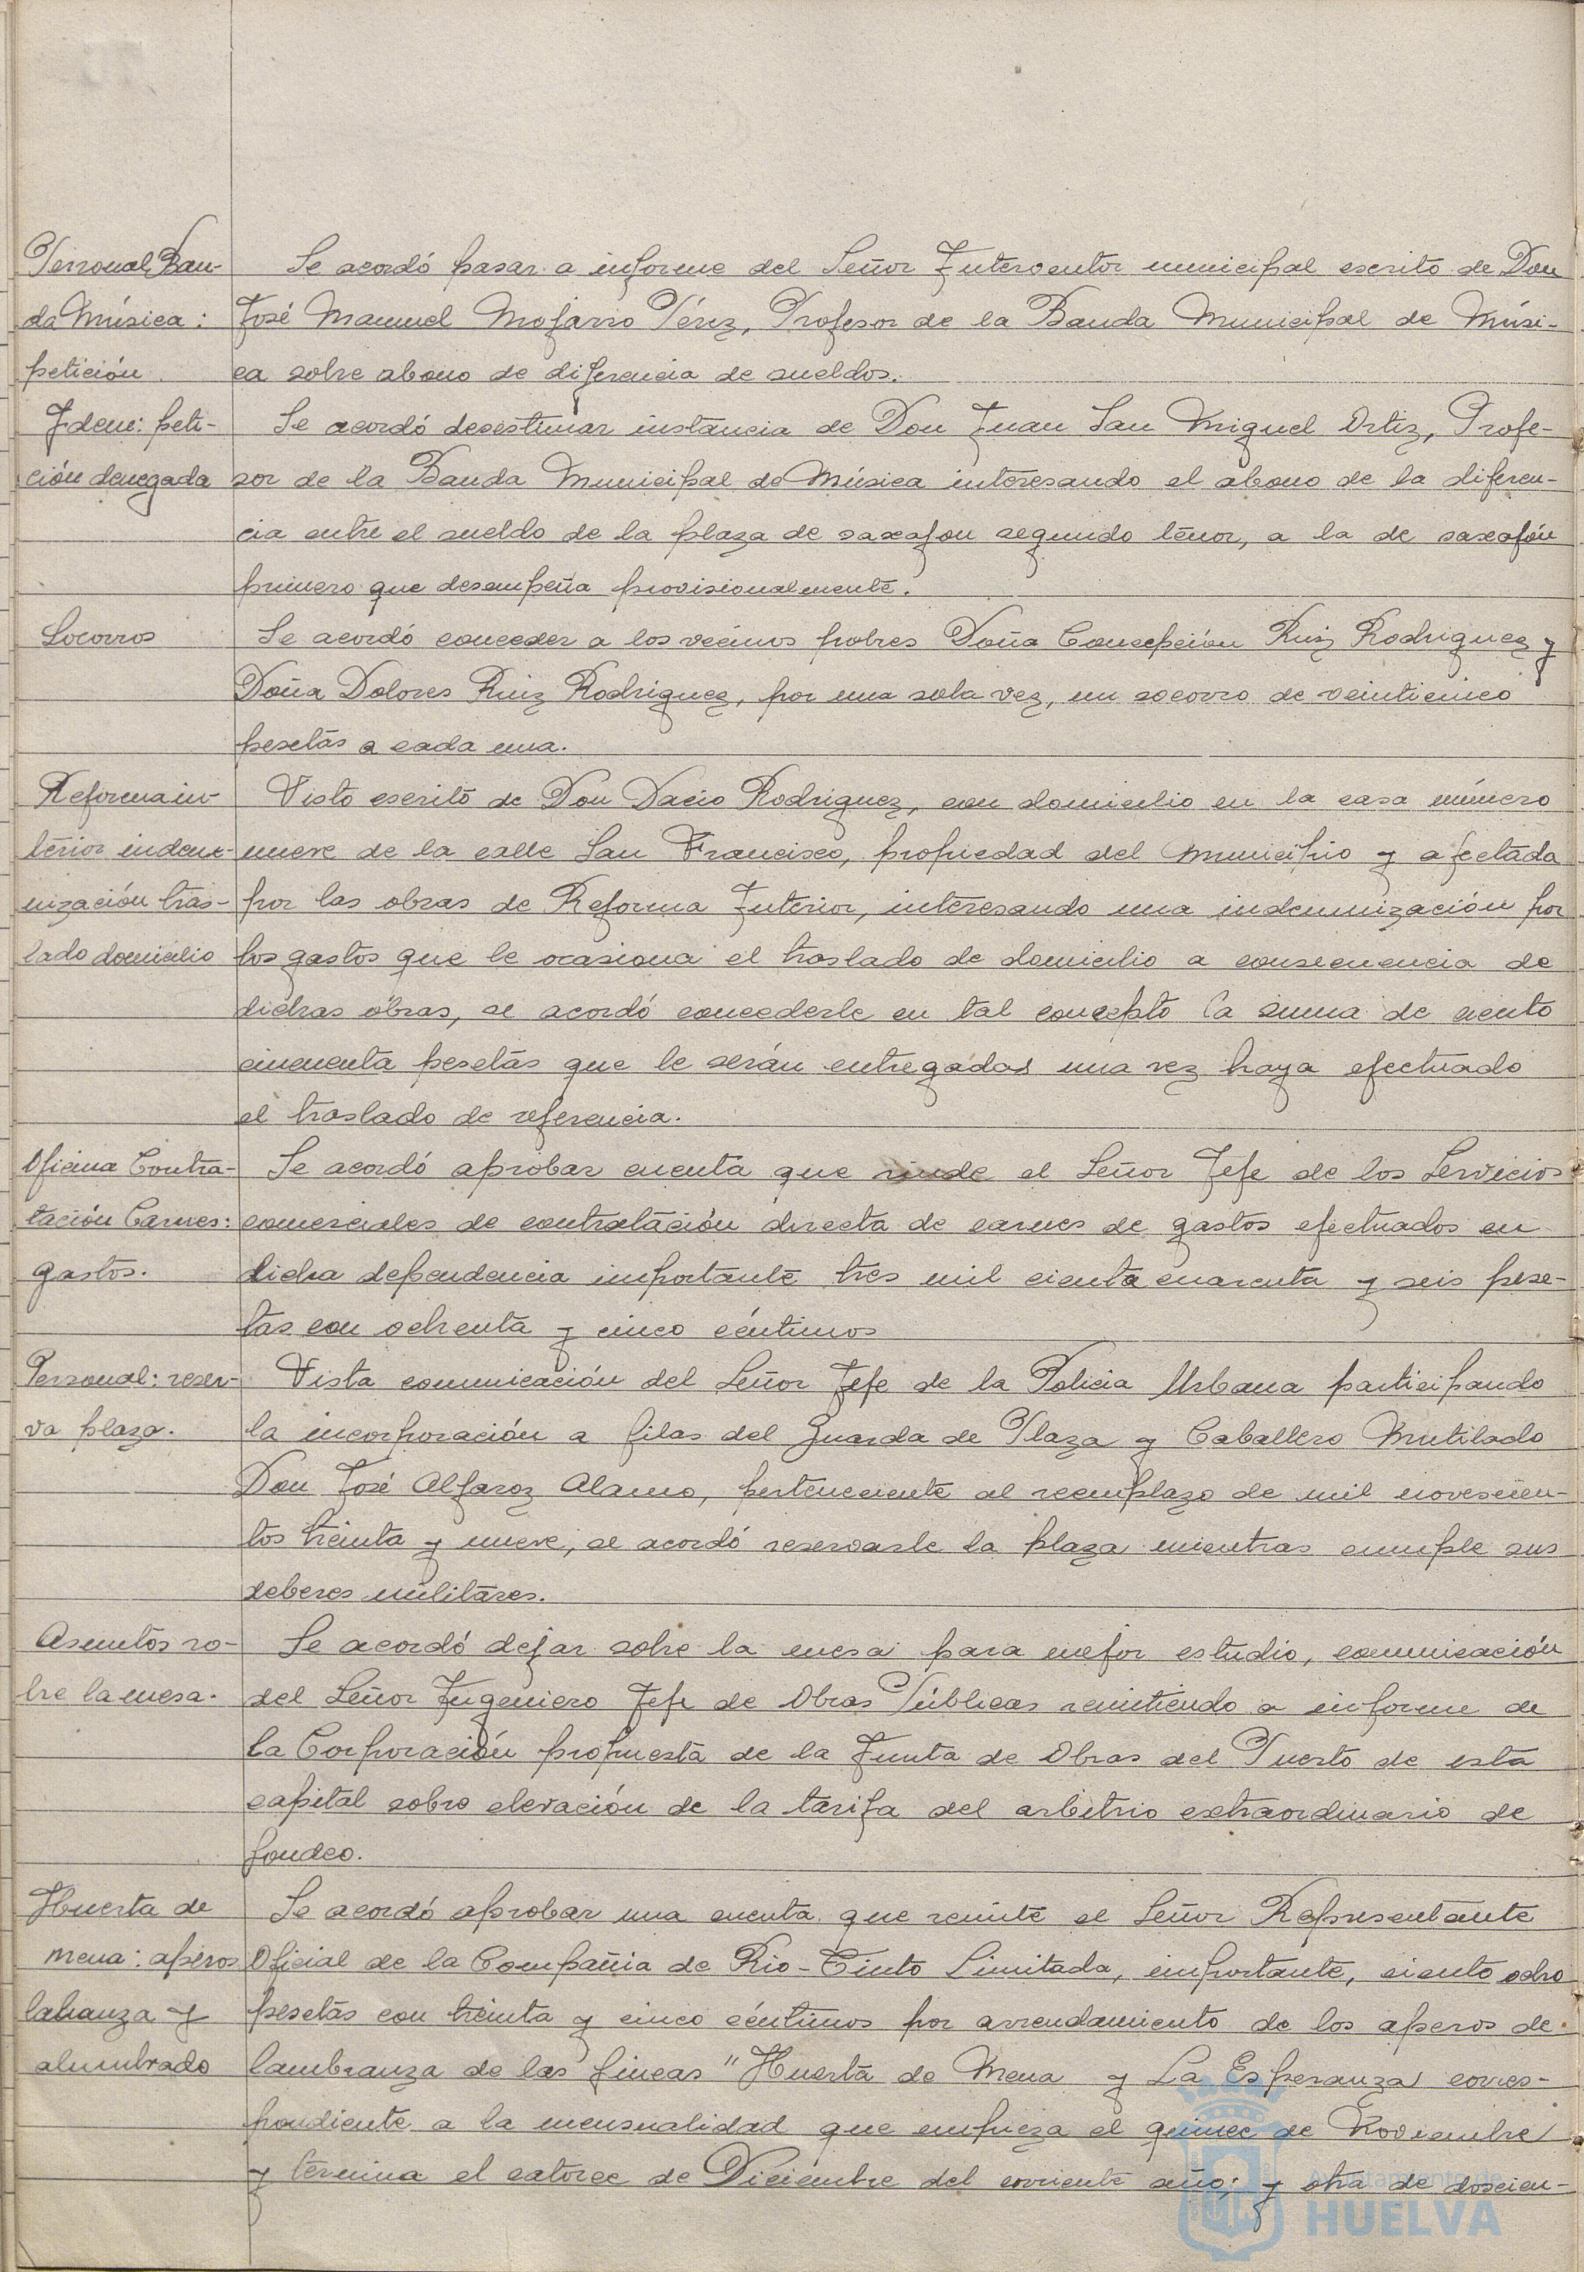 Personal, Ban-
da Música:
petición.
Se acordó pasar a informe del Señor Interventor municipal escrito de Don
José Manuel Mojarro Pérez, Profesor de la Banda Municipal de Músi-
ca sobre abono de diferencia de sueldos.
Idem: peti-
ción denegada
Se acordó desestimar instancia de Don Juan San Miguel Ortiz, Profe-
sor de la Banda Municipal de Música interesando el abono de la diferen-
cia entre el sueldo de la plaza de saxafon segundo tenor, a la de saxafón
primero que desempeña provisionalmente.
Socorros
Se acordó conceder a los vecinos pobres Doña Concepción Ruiz Rodriguez y
Doña Dolores Ruiz Rodriguez, por una sola vez, un socorro de veinticinco
pesetas a cada una.
Reforma in-
terior indem-
nización tras-
lado domicilio
Visto escrito de Don Dacio Rodriguez, con domicilio en la casa número
nueve de la calle San Francisco, propiedad del Municipio y afectada
por las obras de Reforma Interior, interesando una indemnización por
los gastos que le ocasiona el traslado de domicilio a consecuencia de
dichas obras, se acordó concederle en tal concepto la suma de ciento
cincuenta pesetas que le serán entregadas una vez haya efectuado
el traslado de referencia.
Oficina Contra-
tación Carnes:
gastos.
Se acordó aprobar cuenta que rinde el Señor Jefe de los Servicios
comerciales de contratación directa de carnes de gastos efectuados en
dicha dependencia importante tres mil ciento cuarenta y seis pese-
tas con ochenta y cinco céntimos
Personal: reser-
va plaza.
Vista comunicación del Señor Jefe de la Policia Urbana participando
la incorporación a filas del Guarda de Plaza y Caballero Mutilado
Don José Alfaroz Alamo, perteneciente al reemplazo de mil novescien-
tos treinta y nueve, se acordó reservarle la plaza mientras cumple sus
deberes militares.
Asuntos so-
bre la mesa.
Se acordó dejar sobre la mesa para mejor estudio, comunicación
del Señor Ingeniero Jefe de Obras Públicas remitiendo a informe de
la Corporación propuesta de la Junta de Obras del Puerto de esta
capital sobre elevación de la tarifa del arbitrio extraordinario de
fondeo.
Huerta de
Mena: aperos
labranza y
alumbrado
Se acordó aprobar una cuenta que remite el Señor Representante
Oficial de la Compañia de Rio-Tinto Limitada, importante, ciento ocho
pesetas con treinta y cinco céntimos por arrendamiento de los aperos de
lambranza de las fincas "Huerta de Mena y La Esperanza corres-
pondiente a la mensualidad que empieza el quince de Noviembre
y termina el catorce de Diciembre del corriente año; y otra de doscien-
Ayuntamiento de
HUELVA